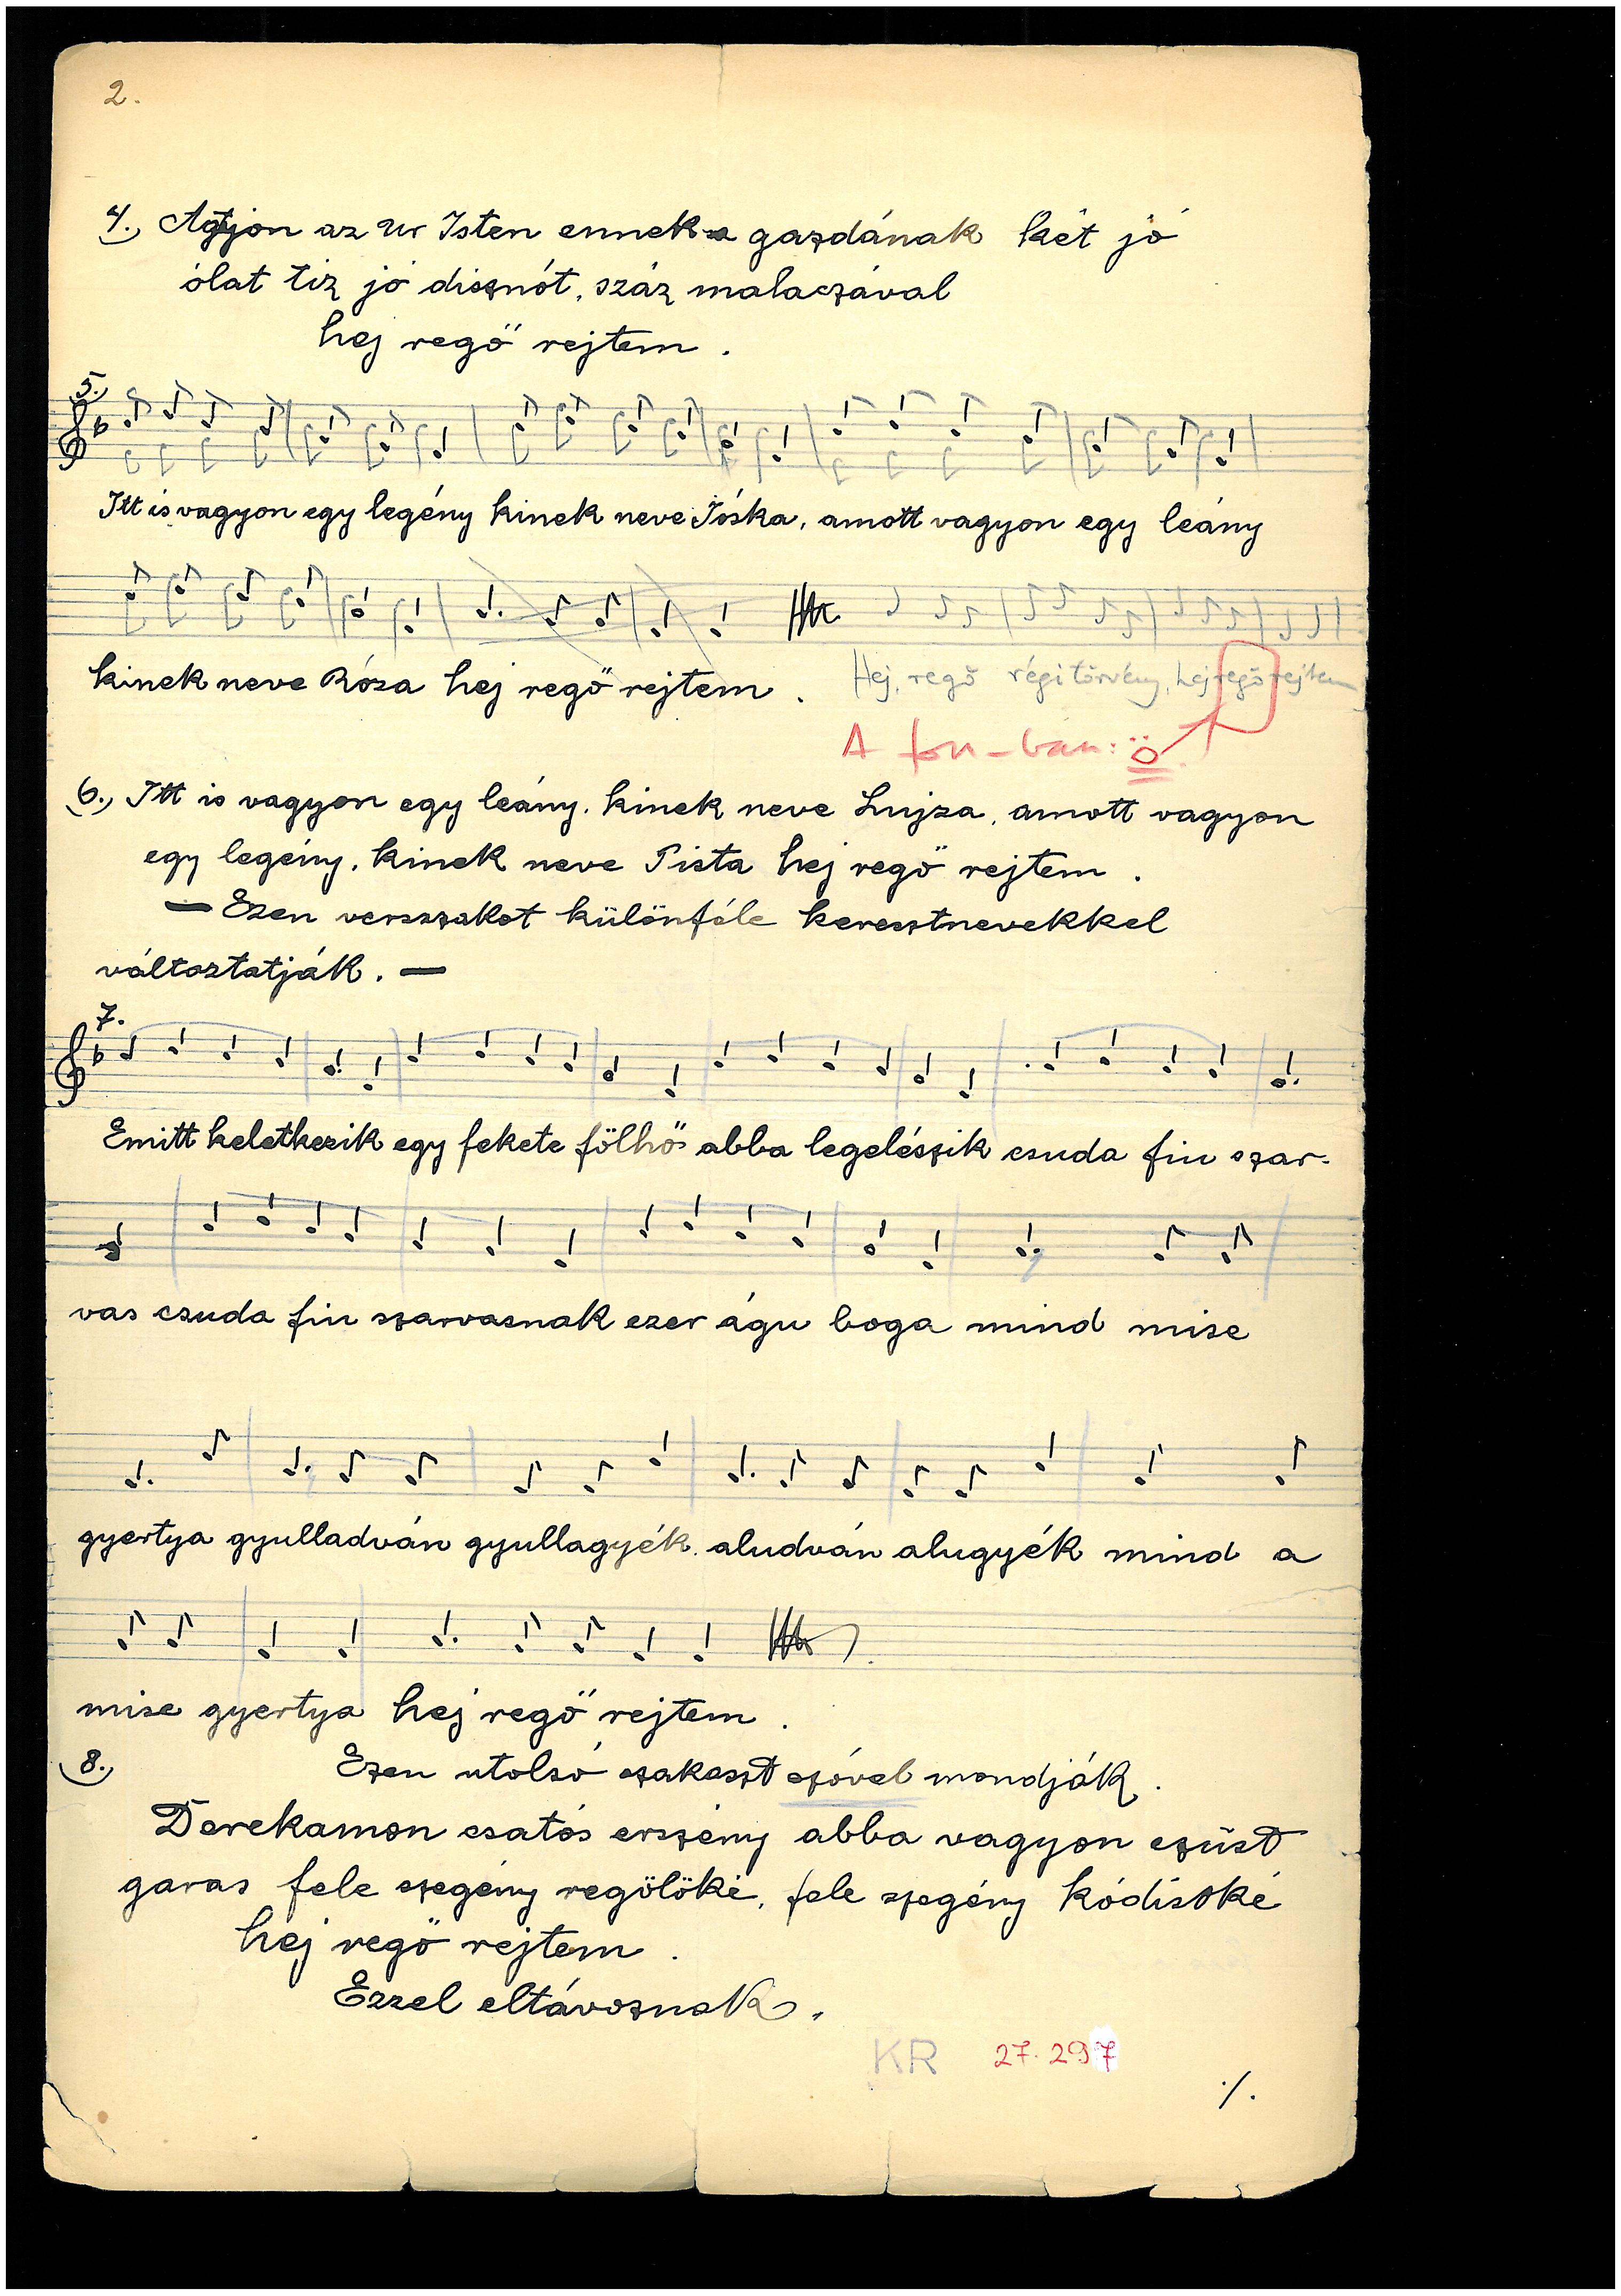 2.
4., Agyjon az Ur Isten ennek a gazdának két jó
ólat tiz jó disznót, száz malaczával
hej regő rejtem.
5.,
Itt is vagyon egy legény kinek neve Jóska, amott vagyon egy leány
kinek neve Róza hej regő rejtem. Hej, regő régi törvény, hej regö rejtem
A fon-ban: ö
6., Itt is vagyon egy leány, kinek neve Lujza, amott vagyon
egy legény, kinek neve Pista hej regő rejtem.
— Ezen versszakot különféle keresztnevekkel
változtatják. —
7.
Emitt keletkezik egy fekete fölhő abba legelészik csuda fiu szar-
vas csuda fiu szarvasnak ezer águ boga mind mise
gyertya gyulladván gyullagyék. aludván alugyék mind a
mise gyertya hej regő rejtem.
8., Ezen utolsó szakaszt szóvel mondják.
Derekamon csatós erszény abba vagyon ezüst
garas fele szegény regölöké, fele szegény kódisoké
hej regő rejtem.
Ezzel eltávoznak.
KR 27.297
./.